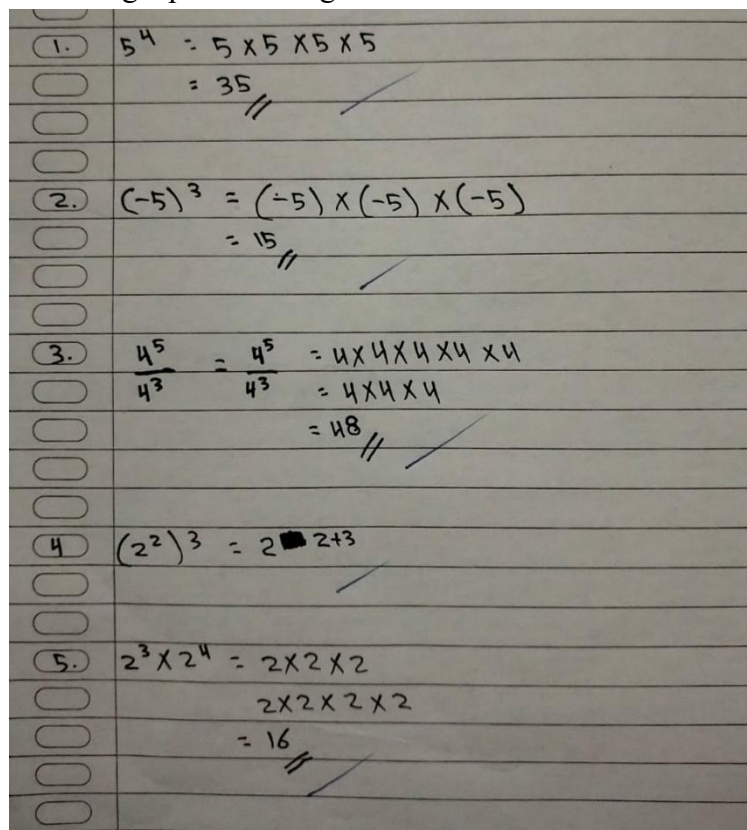 1. 5⁴ = 5 × 5 × 5 × 5
= 35
2. (-5)³ = (-5) × (-5) × (-5)
= 15
3. 4⁵/4³ = 4⁵/4³ = 4×4×4×4×4
= 4×4×4
= 48
4 (2²)³ = 2 ²⁺³
5. 2³ × 2⁴ = 2×2×2
2×2×2×2
= 16